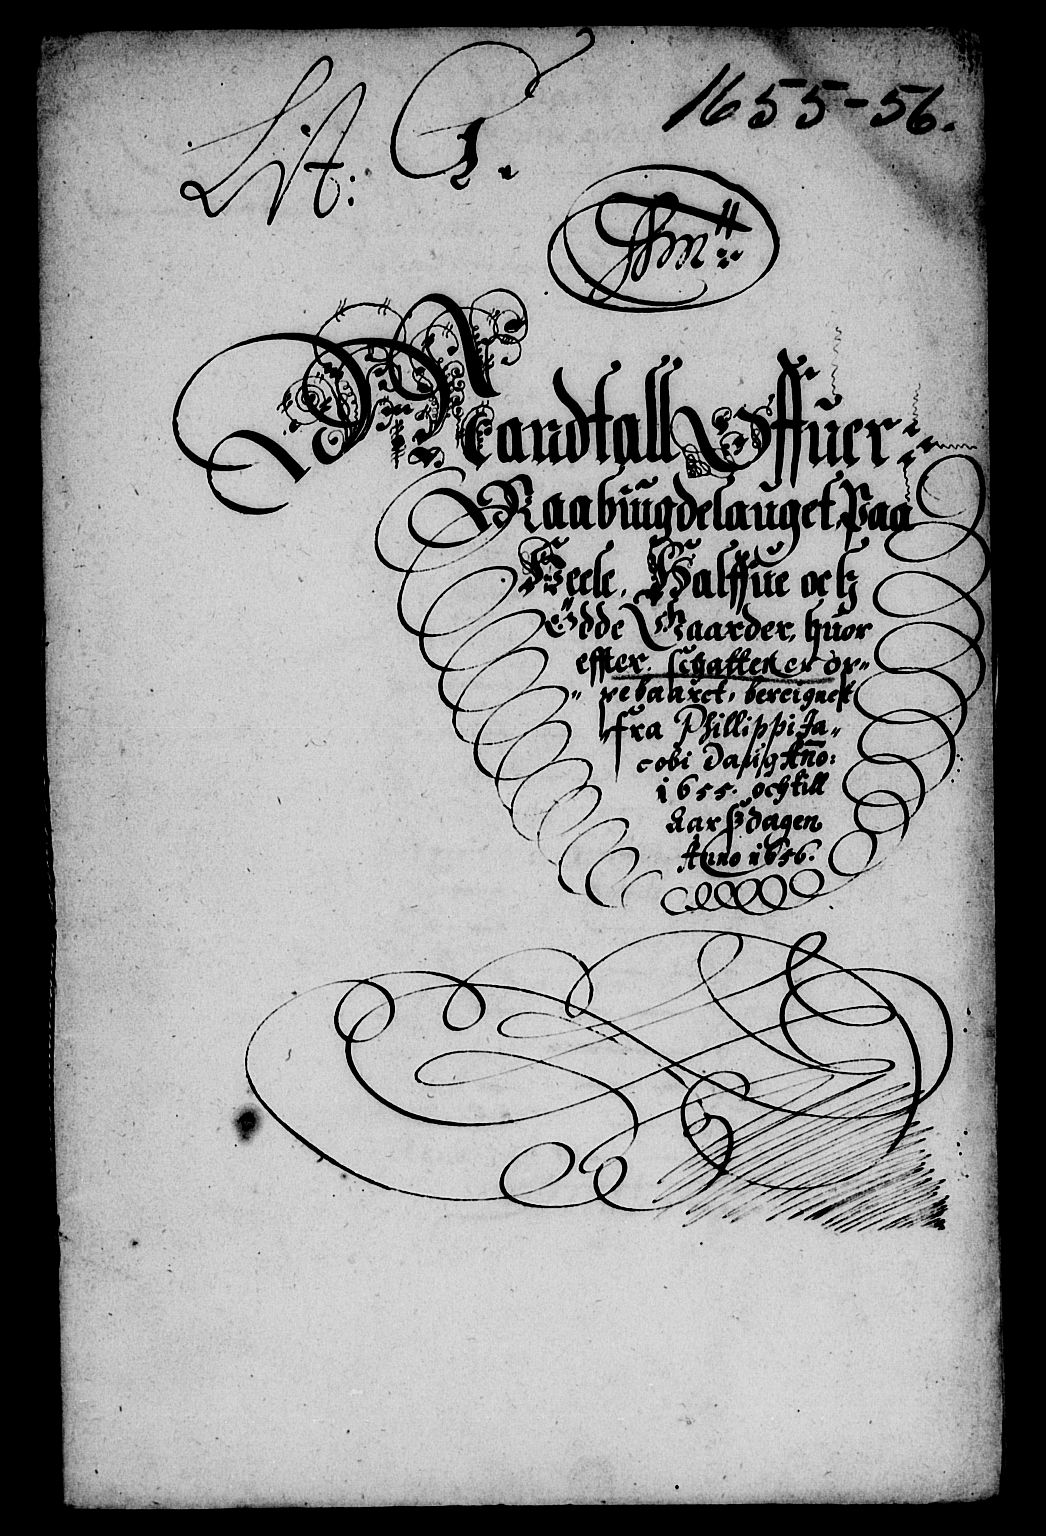 1655-56.
Lit: G.
Mandtall Offuer
Raabÿugdelauget, Paa
Heele, Halffue och
Ödde Gaarder, huor
effter, schatten er op-
pebaaret, bereignett
fra Phillippi Ja-
cobi Daug Año:
1655. och till
Aarßdagen
Anno 1656.